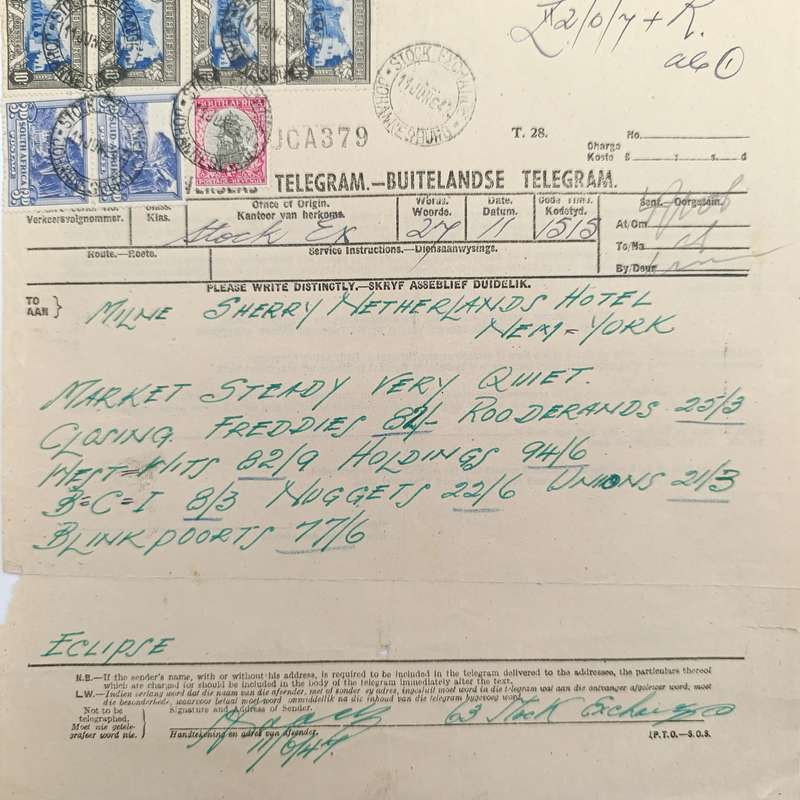 £2/0/7 + R.
STOCK EXCHANGE
11 JUN
JOHANNESBURG
SOUTH AFRICA
POSTAGE REVENUE
JCA379
T. 28.
No.
Charge
Koste £ s. d.
OVERSEAS TELEGRAM.—BUITELANDSE TELEGRAM.
Verkeersvolgnommer.
Class.
Klas.
Office of Origin.
Kantoor van herkoms.
Stock Ex
Words.
Woorde.
27
Date.
Datum.
11
Code Time.
Kodetyd.
15/5
Sent.—Oorgesein.
At/Om
To/Na
By/Deur
Route.—Roete.
Service Instructions.—Diensaanwysings.
PLEASE WRITE DISTINCTLY.—SKRYF ASSEBLIEF DUIDELIK.
TO
AAN
MILNE SHERRY NETHERLANDS HOTEL
NEW=YORK
MARKET STEADY VERY QUIET.
CLOSING FREDDIES 82/- ROODERANDS 25/3
WEST=WITS 82/9 HOLDINGS 94/6
B=C=I 8/3 NUGGETS 22/6 UNIONS 21/3
BLINKPOORTS 77/6
ECLIPSE
N.B.—If the sender's name, with or without his address, is required to be included in the telegram delivered to the addressee, the particulars thereof
which are charged for should be included in the body of the telegram immediately after the text.
L.W.—Indien verlang word dat die naam van die afsender, met of sonder sy adres, ingesluit moet word in die telegram wat aan die ontvanger afgelewer word, moet
die besonderhede, waarvoor betaal moet word onmiddellik na die inhoud van die telegram bygevoeg word.
Not to be
telegraphed.
Moet nie getele-
grafeer word nie.
Signature and Address of Sender.
63 Stock Exchange
11/6/47
Handtekening en adres van afsender.
[P.T.O.—S.O.S.